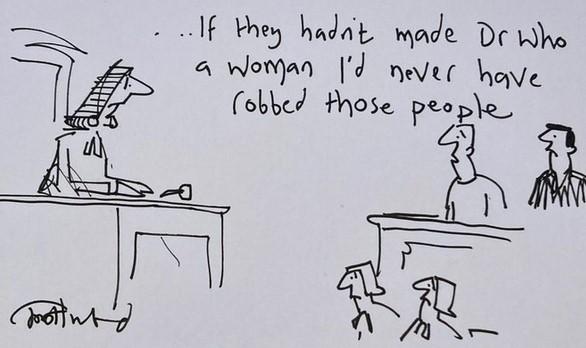 ...If they hadn't made Dr Who
a woman I'd never have
robbed those people